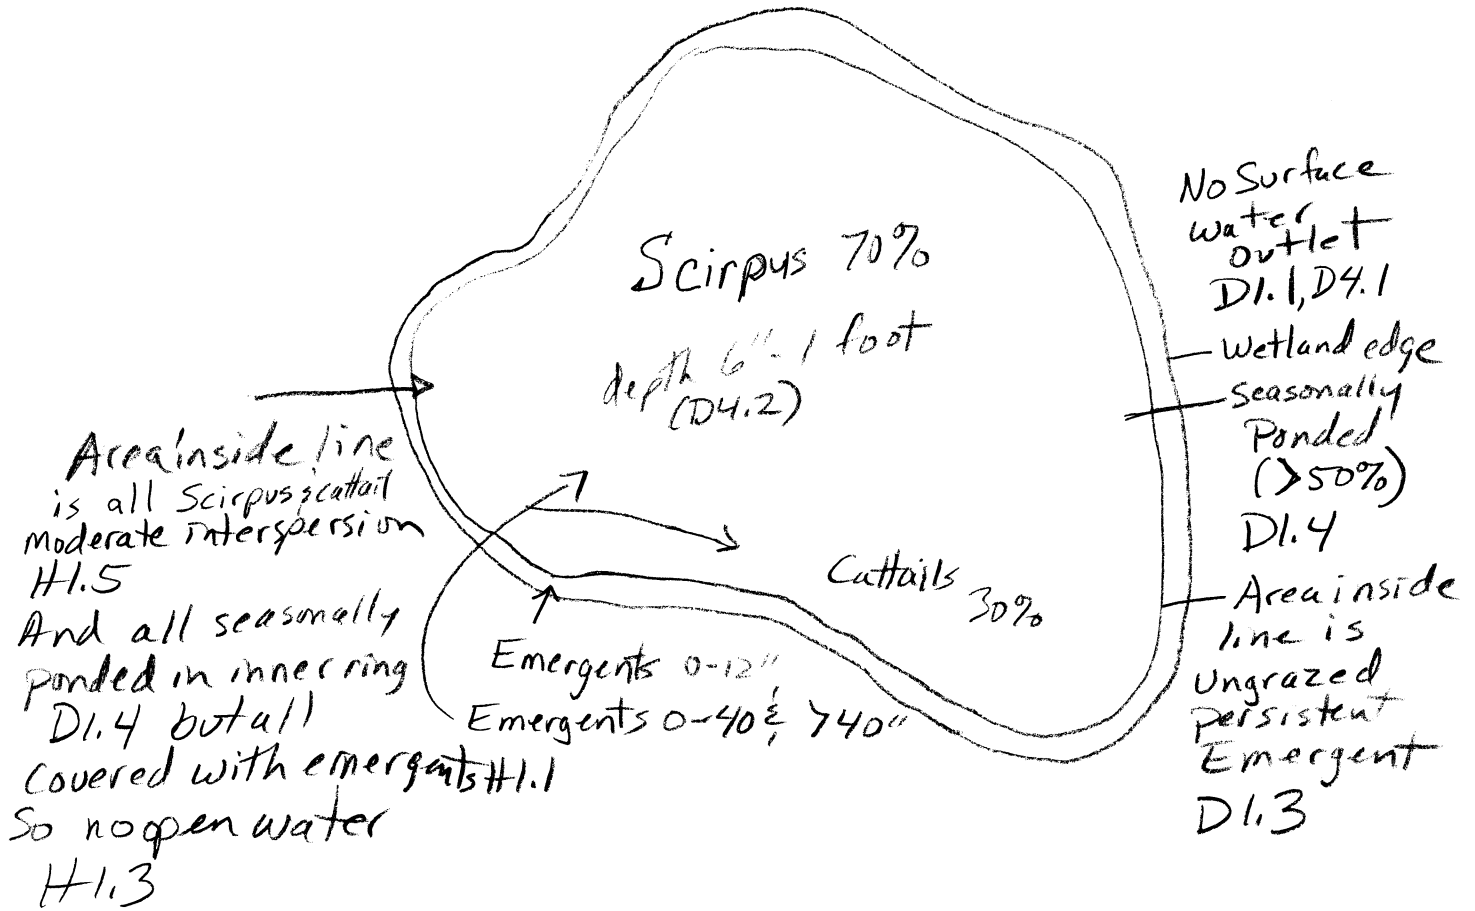 Scirpus 70%
depth 6"-1 foot
(D4.2)
Cattails
30%
Area inside line
is all Scirpus & cattail
moderate interspersion
H1.5
And all seasonally
ponded in inner ring
D1.4 but all
covered with emergents H1.1
So no open water
H1.3
Emergents 0-12"
Emergents 0-40 & >40"
No Surface
water
outlet
D1.1, D4.1
Wetland edge
Seasonally
Ponded
(>50%)
D1.4
Area inside
line is
Ungrazed
persistent
Emergent
D1.3